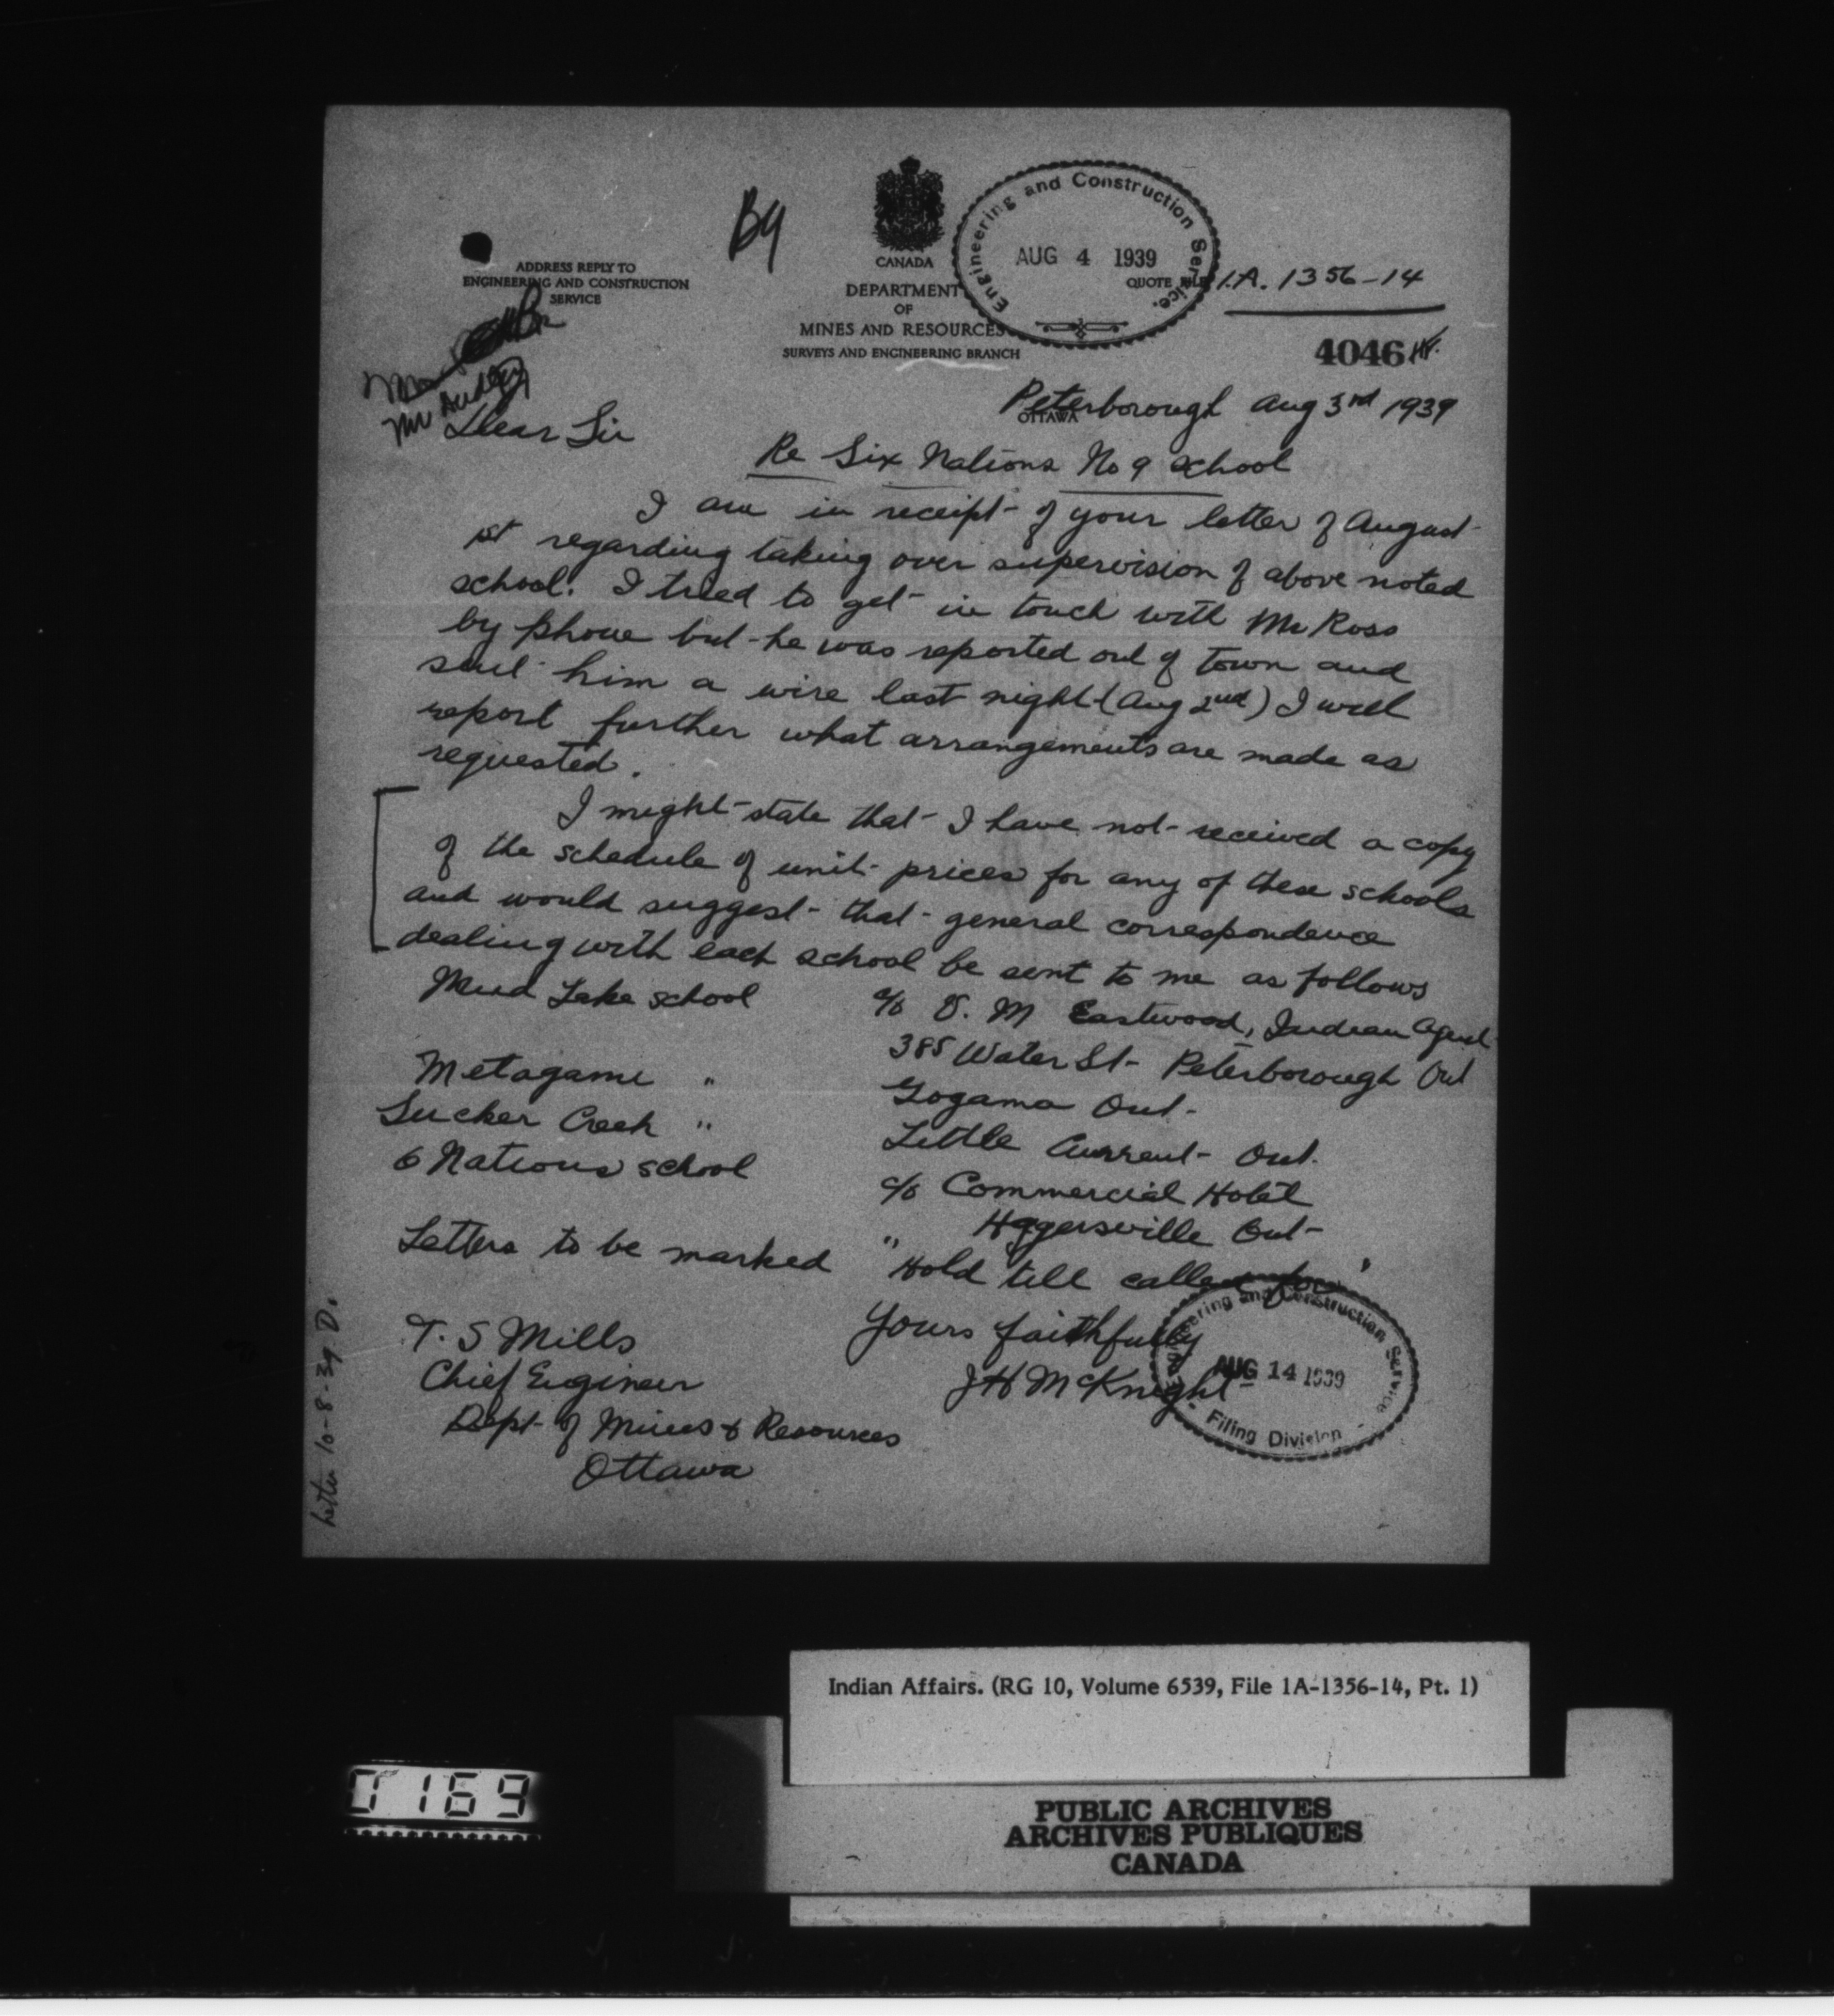 By
CANADA
DEPARTMENT
OF
MINES AND RESOURCES
SURVEYS AND ENGINEERING BRANCH
ADDRESS REPLY TO
ENGINEERING AND CONSTRUCTION
SERVICE
Engineering and Construction Service.
AUG 4 1939
QUOTE FILE I.A. 1356-14
4046
Mr Audley
OTTAWA
Peterborough Aug 3rd 1939
Dear Sir
Re Six Nations No 9 school
I am in receipt of your letter of August
1st regarding taking over supervision of above noted
school. I tried to get in touch with Mr Ross
by phone but he was reported out of town and
sent him a wire last night (Aug 2nd) I will
report further what arrangements are made as
requested.
I might state that I have not received a copy
of the schedule of unit prices for any of these schools
and would suggest that general correspondence
dealing with each school be sent to me as follows
Mud Lake school c/o V. M Eastwood, Indian Agent
385 Water St Peterborough Ont
Metagami " Gogama Ont.
Sucker Creek " Little Current Ont.
6 Nations school c/o Commercial Hotel
Hagersville Ont
Letters to be marked "Hold till called for"
Yours faithfully
J H McKnight
T. S Mills
Chief Engineer
Dept of Mines & Resources
Ottawa
Engineering and Construction Service
AUG 14 1939
Filing Division
letter 10-8-39 D.
Indian Affairs. (RG 10, Volume 6539, File 1A-1356-14, Pt. 1)
0169
PUBLIC ARCHIVES
ARCHIVES PUBLIQUES
CANADA